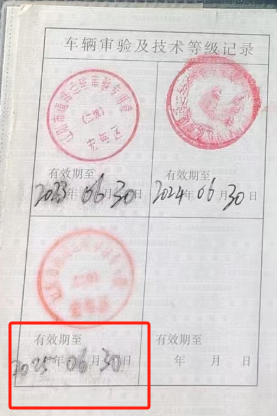 车辆审验及技术等级记录
有效期至
2023年06月30日
有效期至
2024年06月30日
有效期至
2025年06月30日
有效期至
年 月 日